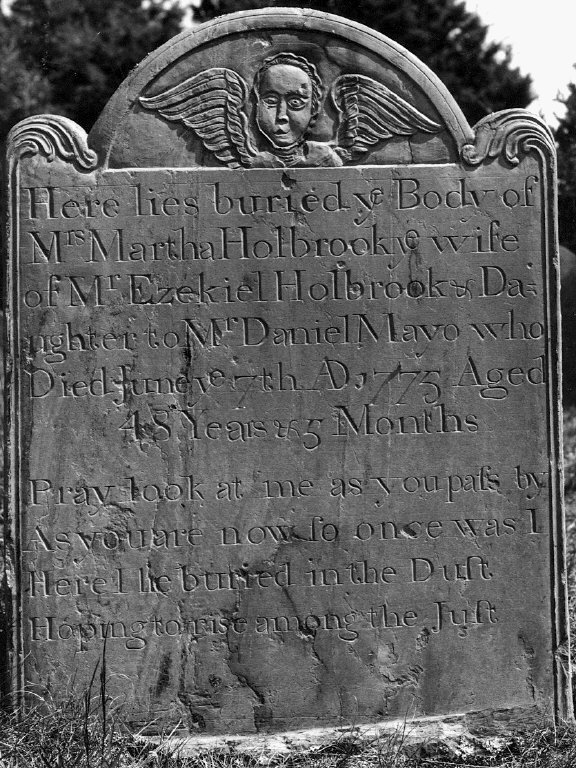 Here lies buried yᵉ Body of
Mʳˢ Martha Holbrook yᵉ wife
of Mʳ Ezekiel Holbrook & Da=
ughter to Mʳ Daniel Mayo who
Died June yᵉ 7th AD, 1775 Aged
48 Years & 5 Months
Pray look at me as you paſs by
As you are now ſo once was I
Here I lie buried in the Duſt
Hoping to rise among the Juſt